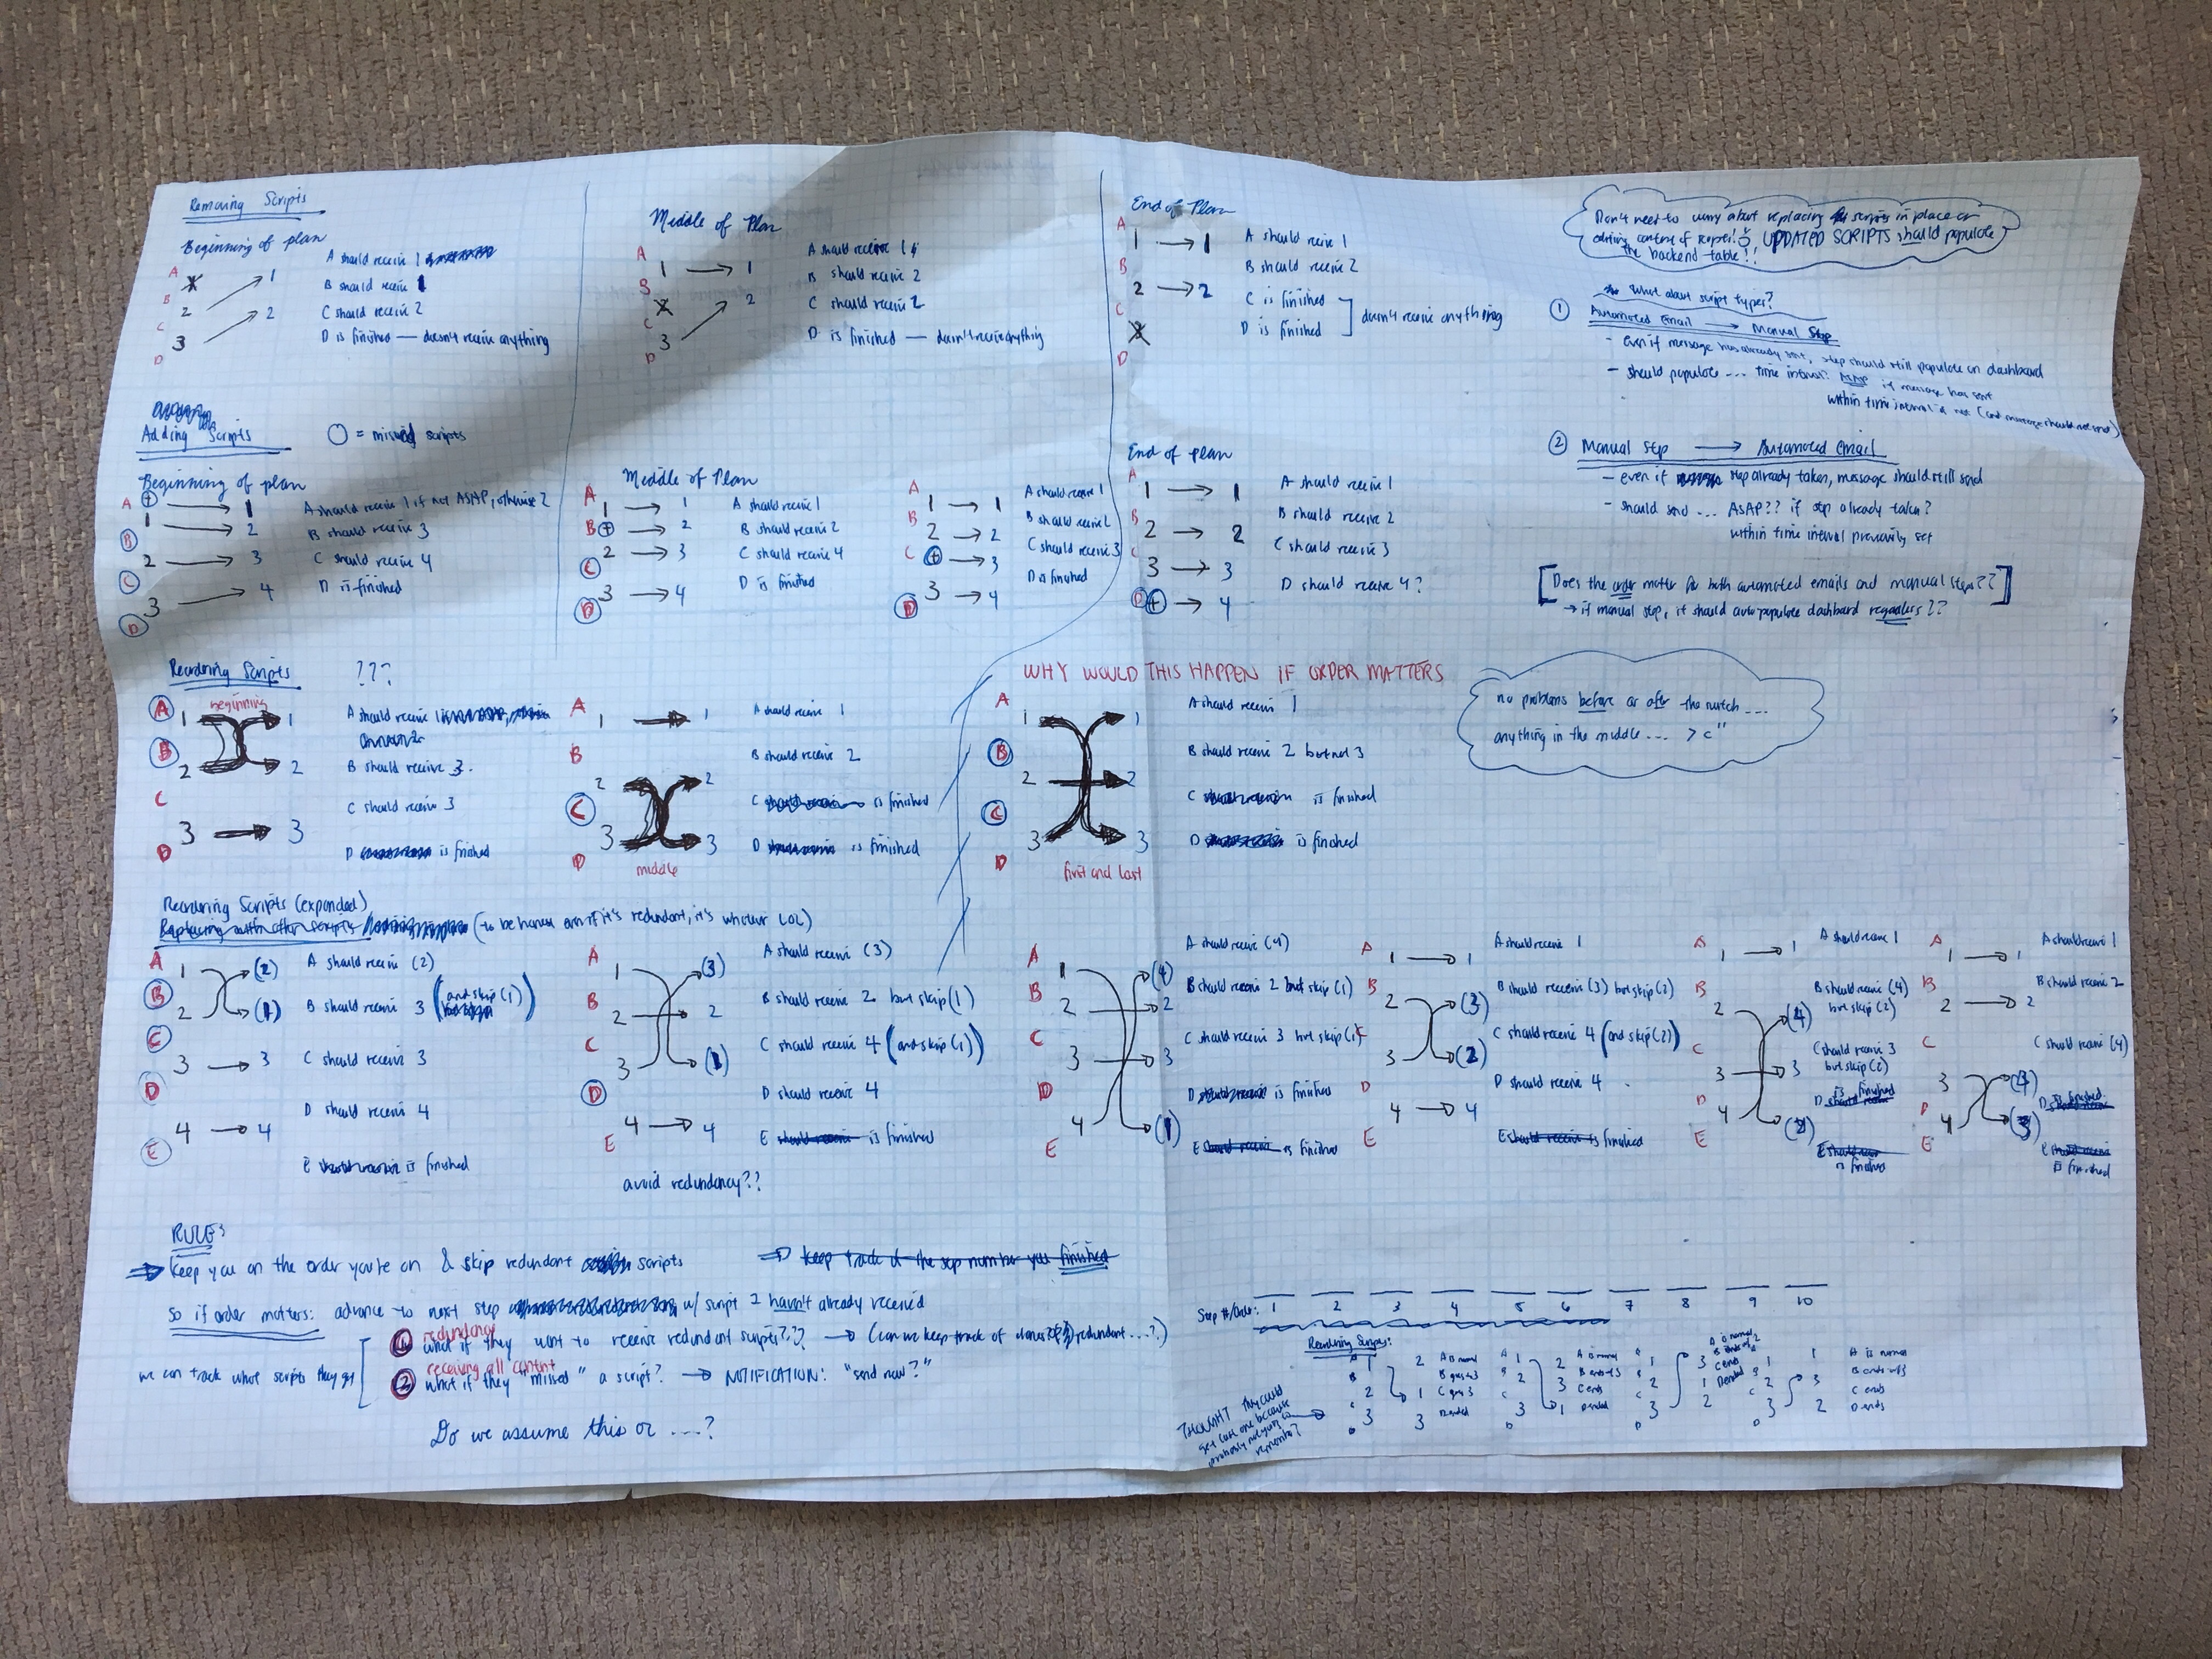 Removing Scripts
Beginning of plan
A
B
2 → 1
C
3 → 2
D
A should receive 1
B should receive 1
C should receive 2
D is finished — doesn't receive anything
Middle of Plan
A
1 → 1
B
C
3 → 2
D
A should receive 1
B should receive 2
C should receive 2
D is finished — doesn't receive anything
End of Plan
A
1 → 1
B
2 → 2
C
D
A should receive 1
B should receive 2
C is finished
D is finished
doesn't receive anything
Don't need to worry about replacing scripts in place or
editing content of scripts! UPDATED SCRIPTS should populate
the backend table!!
What about script types?
① Automated Email → Manual Step
- even if message has already sent, step should still populate on dashboard
- should populate ... time interval? ASAP if message has sent
within time interval if not (and message should not send)
② Manual Step → Automated Email
- even if step already taken, message should still send
- should send ... ASAP?? if step already taken?
within time interval previously set
[Does the order matter for both automated emails and manual steps??]
→ if manual step, it should auto populate dashboard regardless??
Adding Scripts
○ = missed scripts
Beginning of plan
A
+ → 1
1 → 2
B
2 → 3
C
3 → 4
D
A should receive 1 if not ASAP, otherwise 2
B should receive 3
C should receive 4
D is finished
Middle of Plan
A
1 → 1
B + → 2
2 → 3
C
3 → 4
D
A should receive 1
B should receive 2
C should receive 4
D is finished
A
1 → 1
B
2 → 2
C + → 3
3 → 4
D
A should receive 1
B should receive 2
C should receive 3
D is finished
End of plan
A
1 → 1
B
2 → 2
C
3 → 3
D + → 4
A should receive 1
B should receive 2
C should receive 3
D should receive 4?
Reordering Scripts ???
A
beginning
1 1
B
2 2
C
3 → 3
D
A should receive 1
B should receive 3.
C should receive 3
D is finished
A
1 → 1
B
2 2
C
3 3
D
middle
A should receive 1
B should receive 2
C is finished
D is finished
WHY WOULD THIS HAPPEN IF ORDER MATTERS
A
1 1
B
2 → 2
C
3 3
D
first and last
A should receive 1
B should receive 2 but not 3
C is finished
D is finished
no problems before or after the switch ...
anything in the middle ... >c"
Reordering Scripts (expanded)
(to be honest even if it's redundant, it's whatever LOL)
A
1 (2)
B
2 (1)
C
3 → 3
D
4 → 4
E
A should receive (2)
B should receive 3 (and skip (1))
C should receive 3
D should receive 4
E is finished
A
1 (3)
B
2 2
C
3 (1)
D
4 → 4
E
A should receive (3)
B should receive 2 but skip (1)
C should receive 4 (and skip (1))
D should receive 4
E should receive is finished
avoid redundancy??
A
1 (4)
B
2 2
C
3 3
D
4 (1)
E
A should receive (4)
B should receive 2 but skip (1)
C should receive 3 but skip (1)
D is finished
E should receive is finished
A
1 → 1
B
2 (3)
C
3 (2)
D
4 → 4
E
A should receive 1
B should receive (3) but skip (2)
C should receive 4 (and skip (2))
D should receive 4
E should receive is finished
A
1 → 1
B
2 (4)
C
3 3
D
4 (2)
E
A should receive 1
B should receive (4)
but skip (2)
C should receive 3
but skip (2)
D is finished
E is finished
A
1 → 1
B
2 → 2
C
3 (4)
D
4 (3)
E
A should receive 1
B should receive 2
C should receive (4)
D is finished
E should receive
is finished
RULES
⇒ keep you on the order you're on & skip redundant scripts
⇒ keep track of the step number you finished
so if order matters: advance to next step w/ script I haven't already received
we can track what scripts they get
redundancy
① what if they want to receive redundant scripts??
→ (can we keep track of redundant ...?)
receiving all content
② what if they "missed" a script? → NOTIFICATION: "send now?"
Do we assume this or ....?
Step #/Order: 1 2 3 4 5 6 7 8 9 10
Reordering Scripts:
A is normal
B goes 3
C goes 3
D ended
A is normal
B ends
C ends
D ended
A is normal
C ends
D ended
A is normal
C ends
D ends
THOUGHT